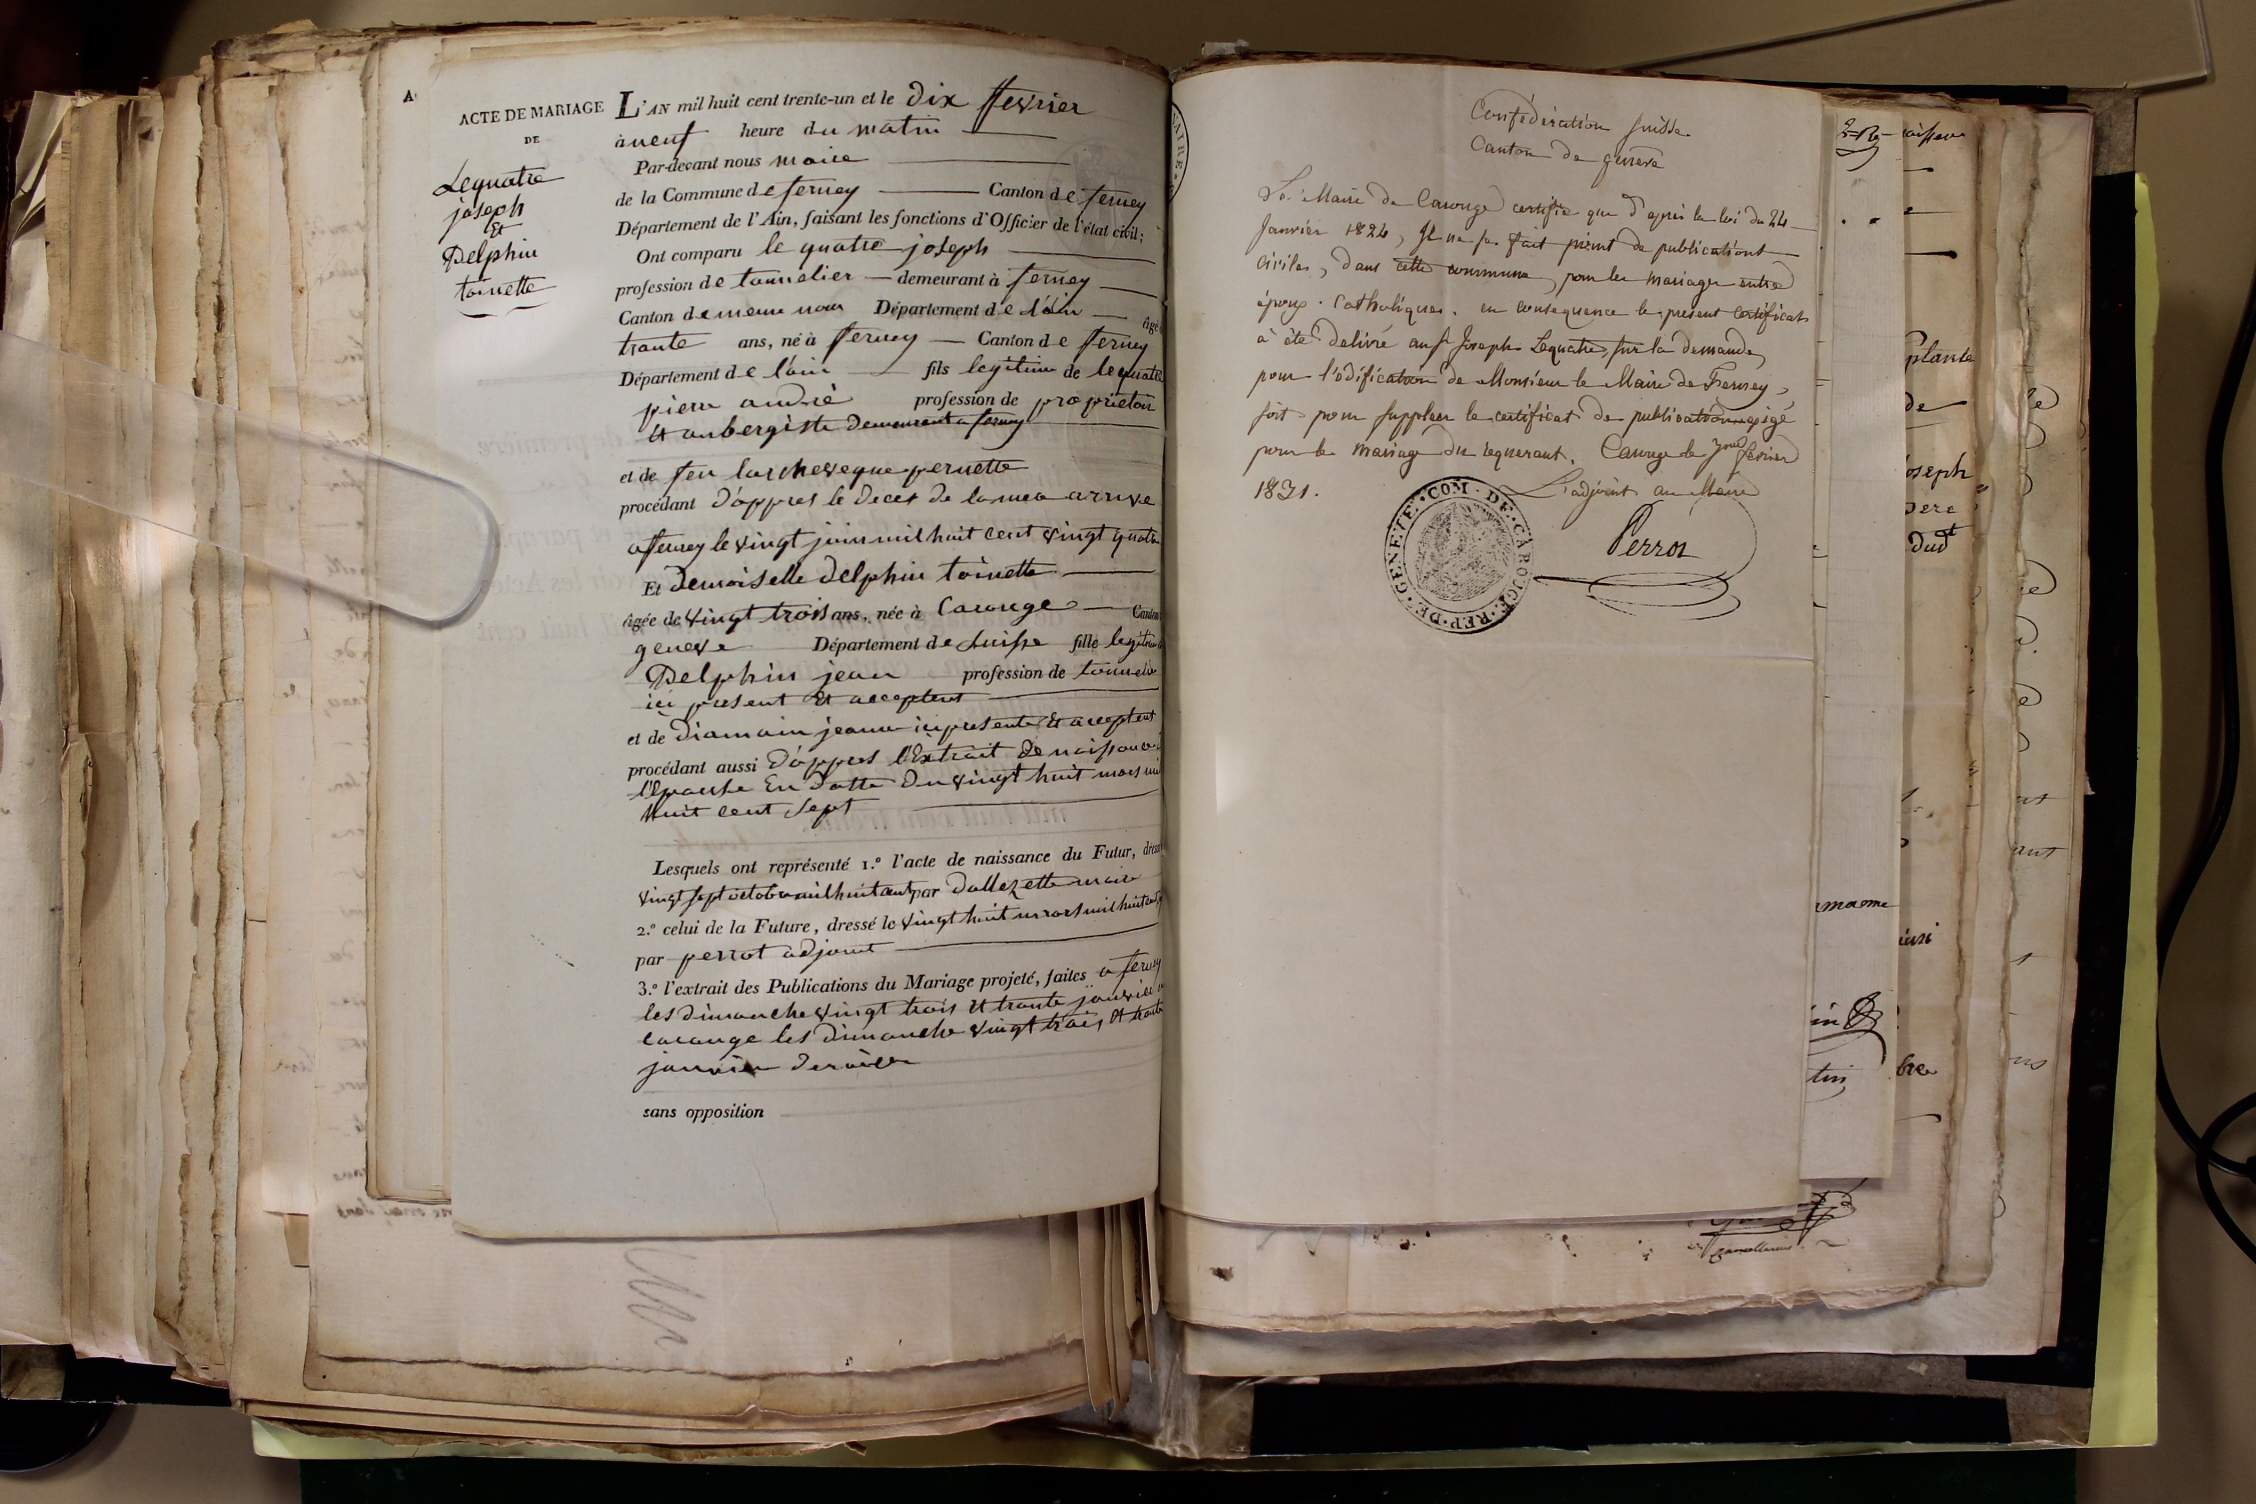 ACTE DE MARIAGE
DE
Lequatre
joseph
Et
Delphin
toinette
L'AN mil huit cent trente-un et le dix ffevrier
à neuf heure du matin
Par-devant nous maire
de la Commune de ferney Canton de ferney
Département de l'Ain, faisant les fonctions d'Officier de l'état civil;
Ont comparu le quatre joseph
profession de tonnelier demeurant à ferney
Canton de meme nom Département de l'áin âgé
trante ans, né à fferney Canton de fferney
Département de l'ain fils legitime de lequatre
pierre andrè profession de proprietair
et aubergiste demeurant a ferney
et de feu larcheveque pernette
procédant d'áppres le deces de la mere arrive
a ferney le vingt juin mil huit cent vingt quatre
Et demoiselle delphin toinette
âgée de vingt trois ans, née à Carouge Canton
geneve Département de Suisse fille legitime
Delphin jean profession de tonnelie
ici present et acceptent
et de diamain jeanne ici presente et acceptent
procédant aussi d'áppres l'Extrait de naissance
l'Epouse En datte du vingt huit mars mil
huit cent sept
Lesquels ont représenté 1.º l'acte de naissance du Futur, dressé
vingt sept octobre mil huit cent par Dallezette maire
2.º celui de la Future, dressé le vingt huit mars mil huit cent
par perrot adjoint
3.º l'extrait des Publications du Mariage projeté, faites a ferney
les dimanche vingt trois et trante janvier
carouge les dimanche vingt trois et trante
janvier dernier
sans opposition
Confédération suisse
Canton de genève
Le Maire de Carouge certifie que d'après la loi du 24
Janvier 1824, Il ne se fait point de publications
civiles, dans cette commune, pour les mariages entre
époux Catholiques. en consequence le présent certificat
à été délivré au Sr Joseph Lequatre, sur la demande,
pour l'édification de Monsieur le Maire de Fernex,
soit pour suppléer le certificat de publications exigé
pour le mariage du requerant. Carouge le 7me février
1831.
L'adjoint au Maire
Perrot
COM. DE CAROUGE. REP. DE GENEVE
plante
de
joseph
pere
dudt
cancellarius